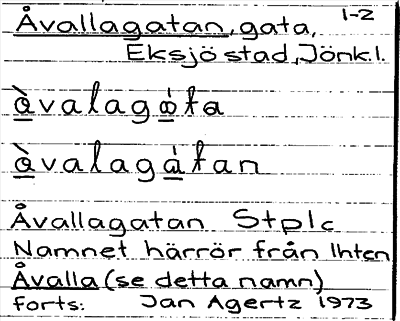 1-2
Åvallagatan, gata,
Eksjö stad, Jönk.l.
å̀valagáta
å̀valagátan
Åvallagatan Stplc
Namnet härrör från lhten
Åvalla (se detta namn)
forts: Jan Agertz 1973